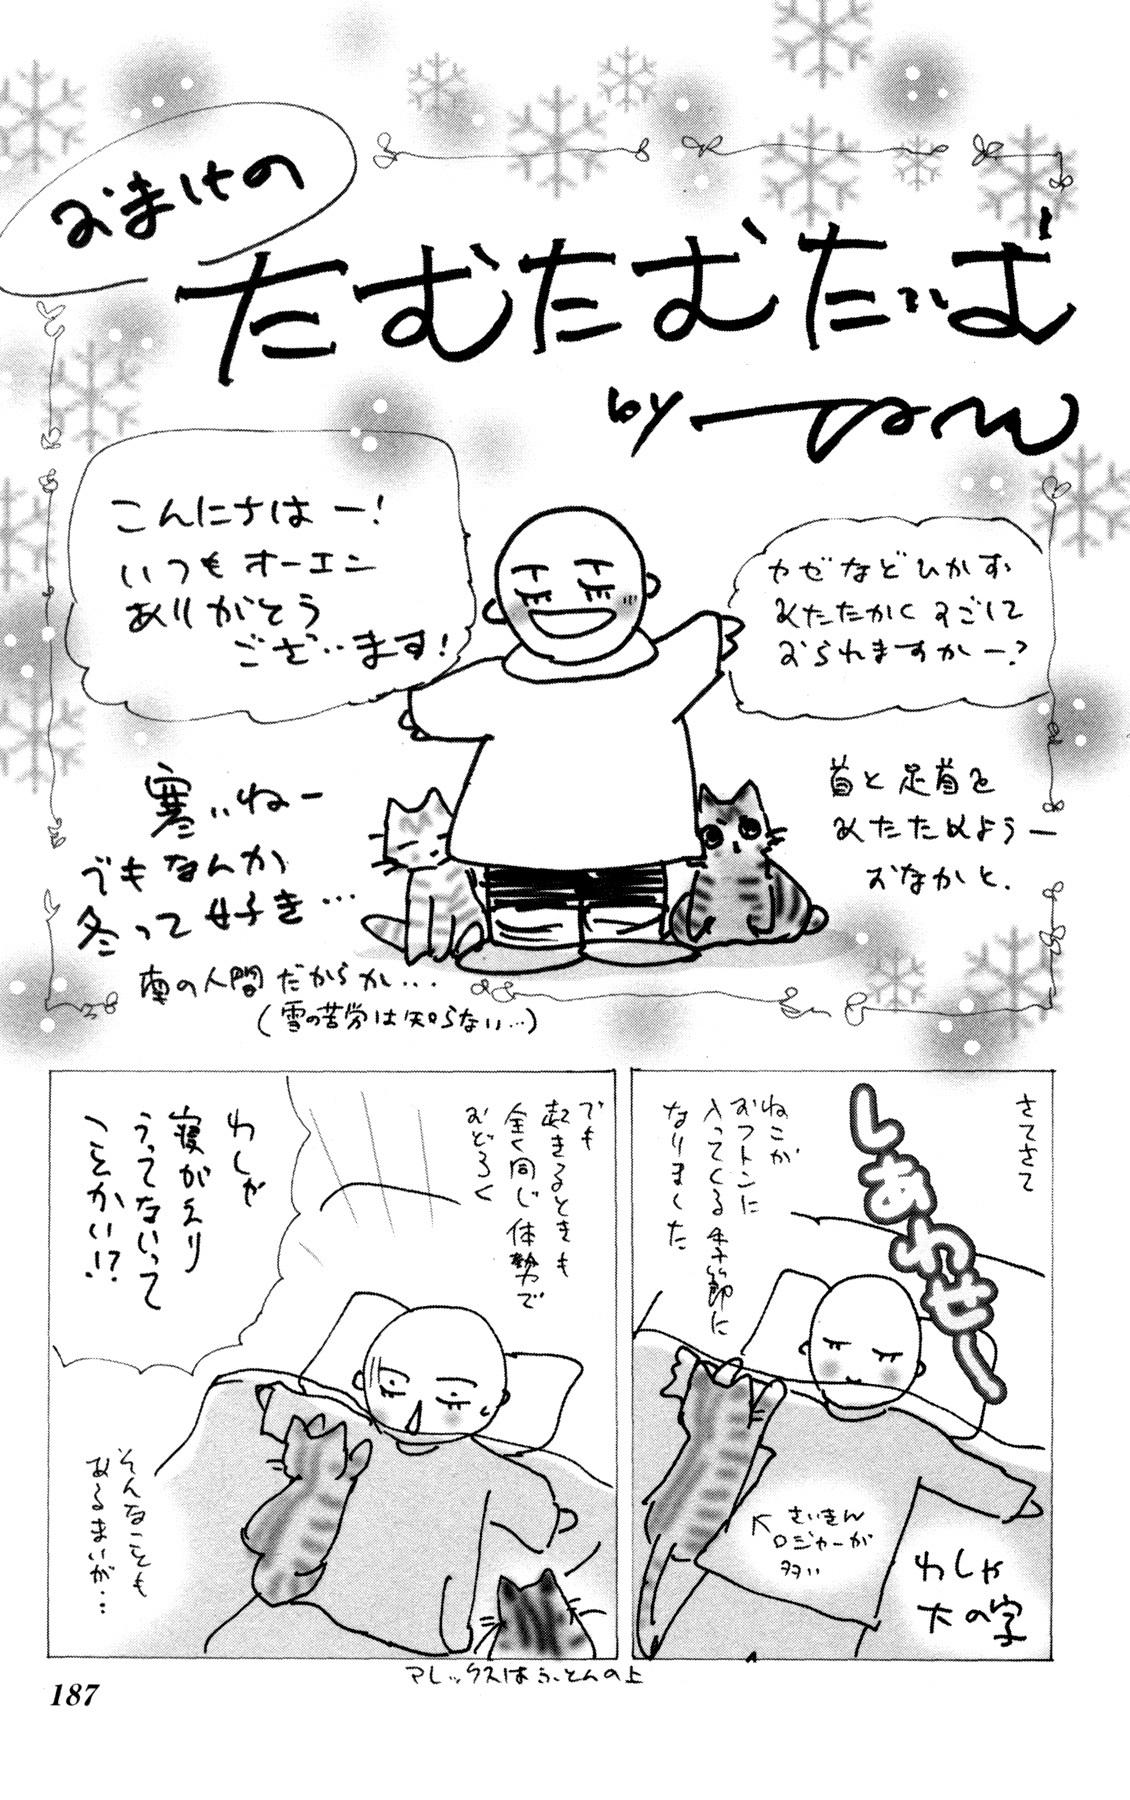 おまけの
たむたむたいむ
by
こんにちはー!
いつもオーエン
ありがとう
ございます!
カゼなどひかず
あたたかくすごして
おられますかー?
寒いねー
でもなんか
冬って好き…
南の人間だからか…
(雪の苦労は知らない…)
首と足首を
あたためよう―
おなかと.
さてさて
しあわせー
ねこが
おフトンに
入ってくる季節に
なりました
さいきん
ロジャーが
多い
わしゃ
大の字
でも
起きるときも
全く同じ体勢で
おどろく
わしゃ
寝がえり
うってないって
ことかい!?
そんなことも
あるまいが…
アレックスはふとんの上
187